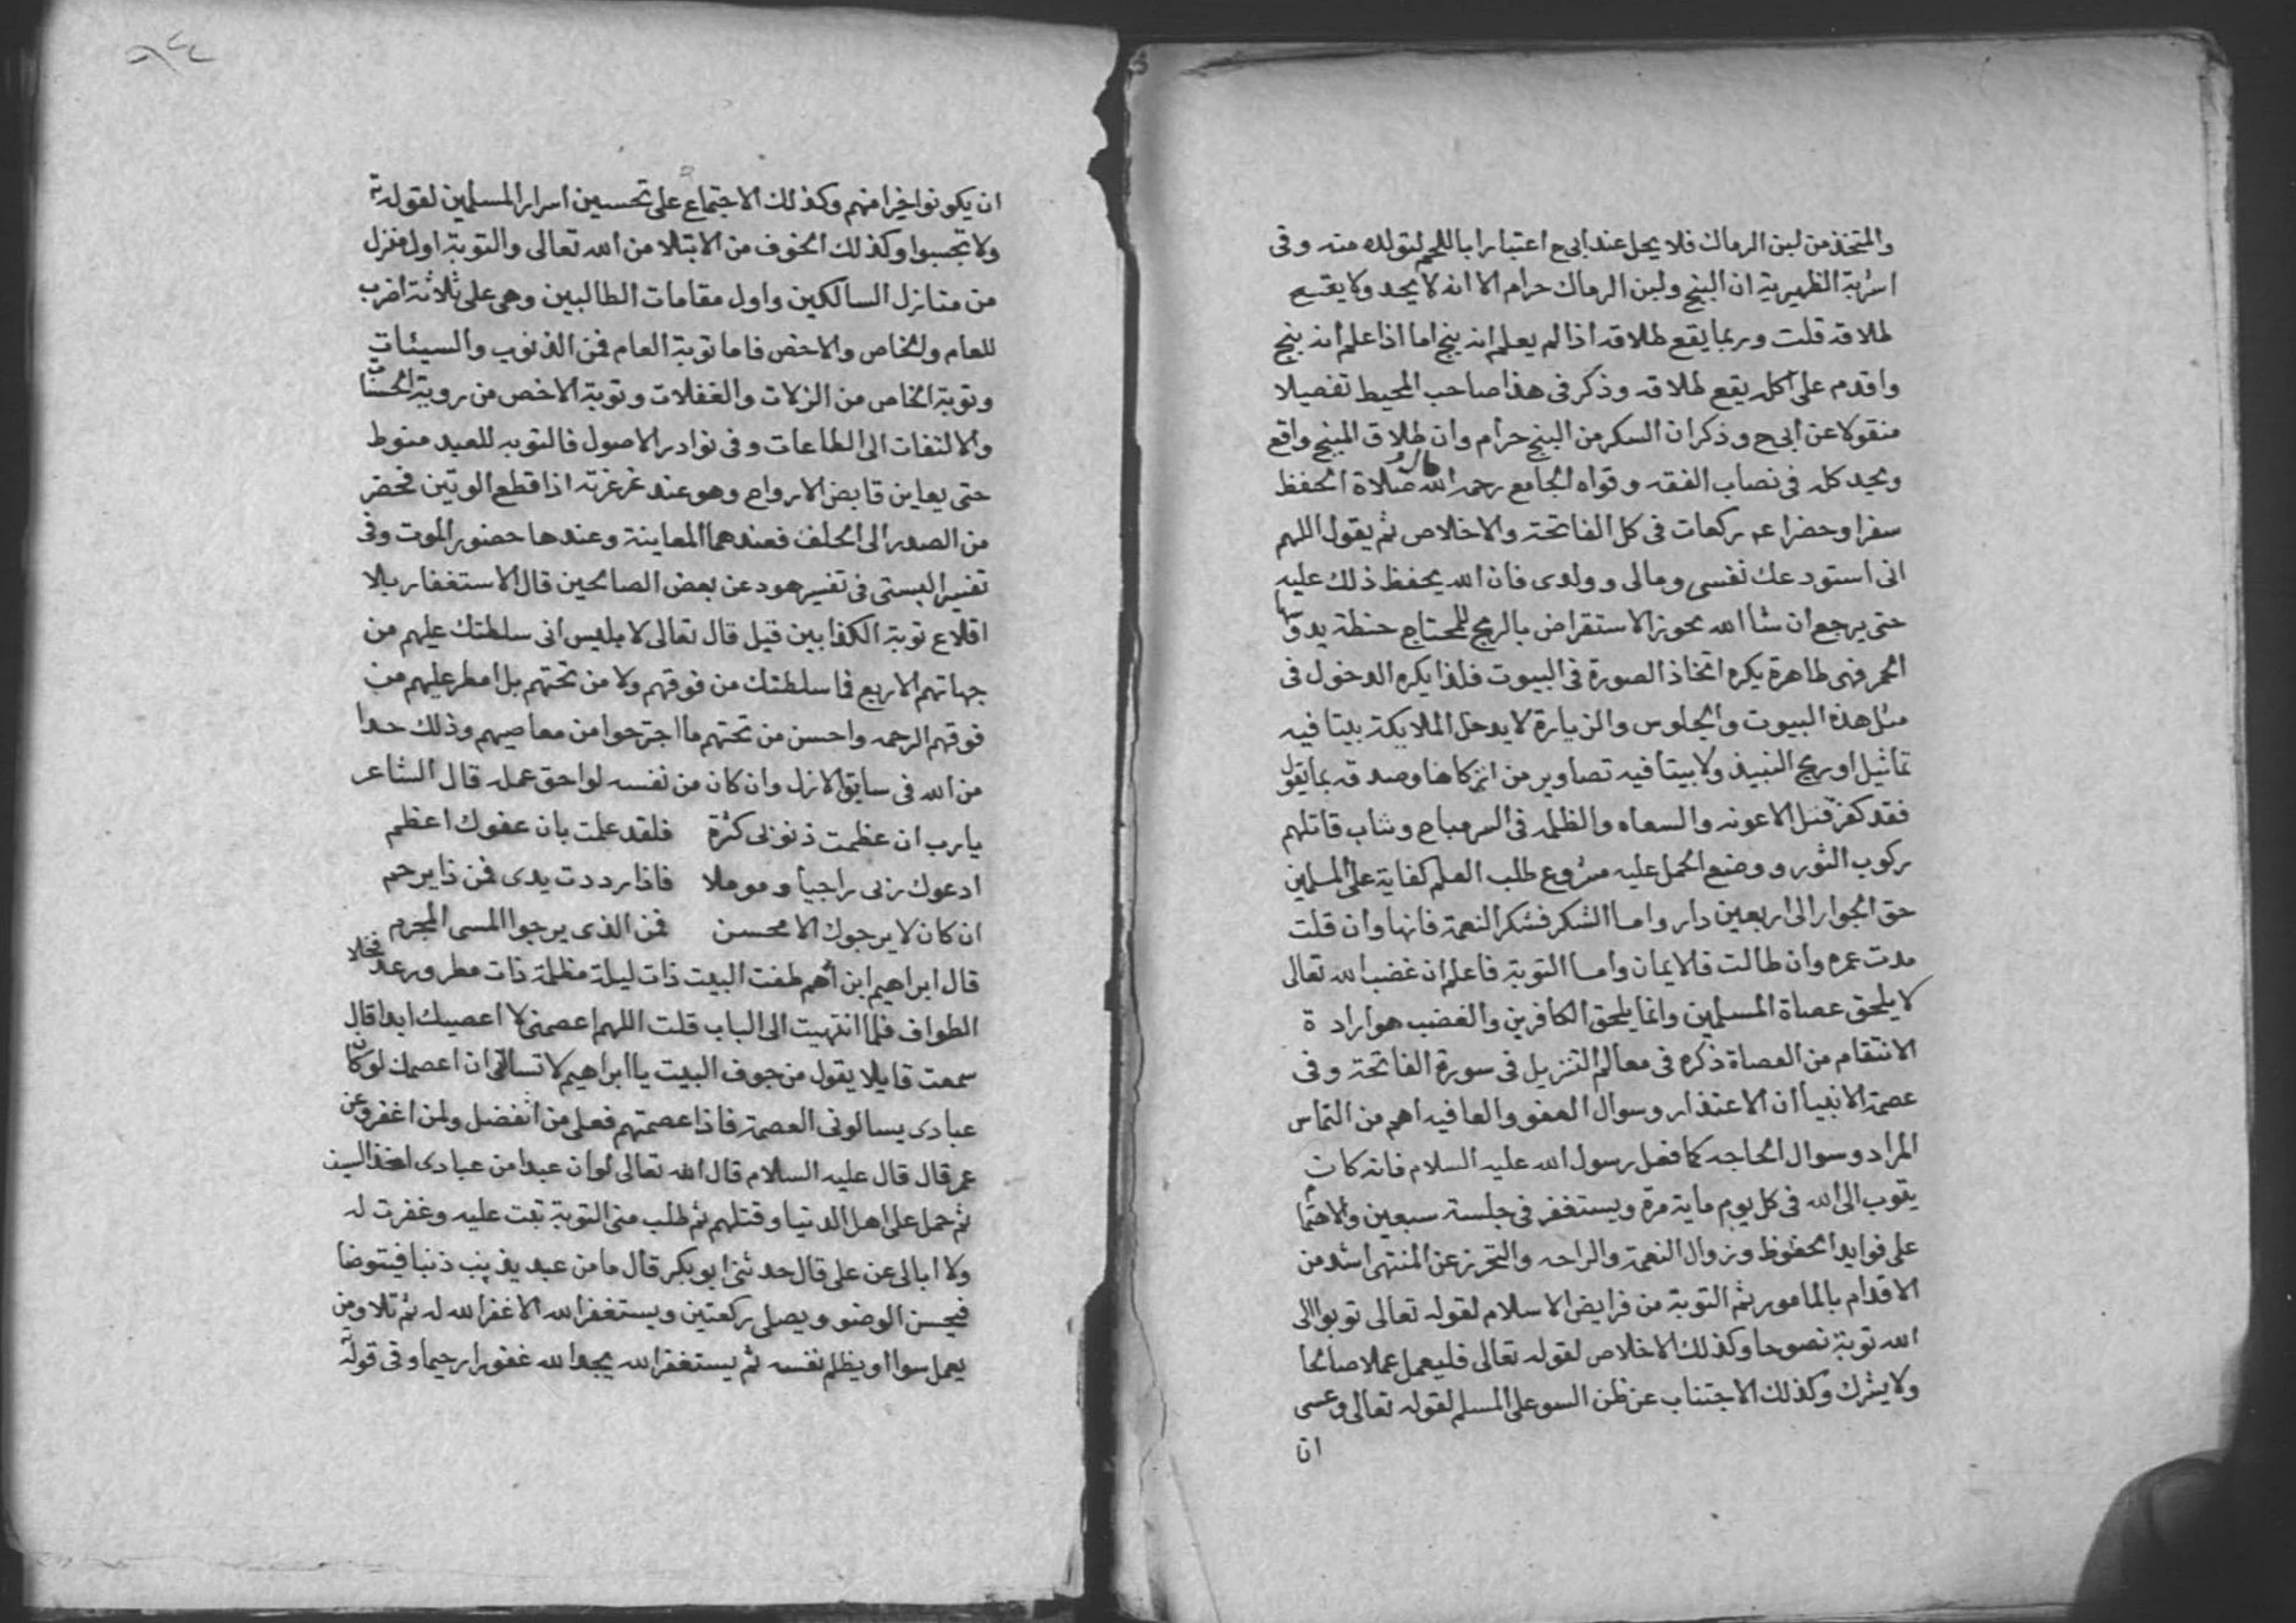 والمتخذ من لبن الرماك فلا يحل عند ابى ح اعتبارا باللحم لتولده منه وفى
اشربة الظهيرية ان البنج ولبن الرماك حرام الا انه لا يحد ولا يقع
طلاقه قلت وربما يقع طلاقه اذا لم يعلم انه بنج اما اذا علم انه بنج
واقدم على اكله يقع طلاقه وذكر فى هذا صاحب المحيط تفصيلا
منقولا عن ابى ح وذكر ان السكر من البنج حرام وان طلاق المبنج واقع
ويحد كله فى نصاب الفقه وقواه الجامع رحمه الله صلاة الحفظ
سفرا وحضرا ركعات فى كل الفاتحة والاخلاص ثم يقول اللهم
انى استودعك نفسى ومالى وولدى فان الله يحفظ ذلك عليه
حتى يرجع ان شا الله يجوز الاستقراض بالربح للمحتاج حنطة يدوسها
الحمر فهى طاهرة يكره اتخاذ الصورة فى البيوت فلذا يكره الدخول فى
مثل هذه البيوت والجلوس والزيارة لا يدخل الملايكة بيتا فيه
تماثيل او ريح النبيذ ولا بيتا فيه تصاوير من اتى كاهنا وصدقه بما يقول
فقد كفر قتل الاعونه والسعاه والظلمه فى السر مباح ويثاب قاتلهم
ركوب الثور ووضع الحمل عليه مشروع طلب العلم كفاية على المسلمين
حق الجوار الى اربعين دار واما الشكر فشكر النعمة فانها وان قلت
مدت عمره وان طالت فالايمان واما التوبة فاعلم ان غضب الله تعالى
لا يلحق عصاة المسلمين وانما يلحق الكافرين والغضب هو اراد ة
الانتقام من العصاة ذكره فى معالم التنزيل فى سورة الفاتحة وفى
عصمة الانبيا ان الاعتذار وسوال العفو والعافيه اهم من التماس
المراد وسوال الحاجه كما فعل رسول الله عليه السلام فانه كان
يتوب الى الله فى كل يوم ماية مرة ويستغفر فى جلسة سبعين والاهتمام
على فوايد الحظوظ وزوال النعمة والراحه والتحرز عن المنتهى اشد من
الاقدام بالمامور ثم التوبة من فرايض الاسلام لقوله تعالى توبوا الى
الله توبة نصوحا وكذلك الاخلاص لقوله تعالى فليعمل عملا صالحا
ولا يشرك وكذلك الاجتناب عن ظن السو على المسلم لقوله تعالى وعسى
ان
ان يكونوا خيرا منهم وكذلك الاجتماع على تحسين اسرار المسلمين لقوله ته
ولا تجسسوا وكذلك الخوف من الابتلا من الله تعالى والتوبة اول منزل
من منازل السالكين واول مقامات الطالبين وهى على ثلاثة اضرب
للعام ولخاص والاخص فاما توبة العام فمن الذنوب والسيئات
وتوبة الخاص من الزلات والغفلات وتوبة الاخص من روية الحسنات
والالتفات الى الطاعات وفى نوادر الاصول فالتوبه للعبد منوط
حتى يعاين قابض الارواح وهو عند غرغرته اذا قطع الوتين فحضر
من الصدر الى الحلف فعندهما المعاينة وعندها حضور الموت وفى
تفسير البستى فى تفسير هود عن بعض الصالحين قال الاستغفار بلا
اقلاع توبة الكذابين قيل قال تعالى لابليس انى سلطتك عليهم من
جهاتهم الاربع فما سلطتك من فوقهم ولا من تحتهم بل امطر عليهم من
فوقهم الرحمه واحسن من تحتهم ما اجترحوا من معاصيهم وذلك حدا
من الله فى سابق الازل وان كان من نفسه لواحق عمله قال الشاعر
يا رب ان عظمت ذنوبى كثرة فلقد علمت بان عفوك اعظم
ادعوك ربى راجيا وموملا فاذا رددت يدى فمن ذا يرحم
ان كان لا يرجوك الا محسن فمن الذى يرجوا المسى المجرم
قال ابراهيم ابن ادهم طفت البيت ذات ليلة مظلمة ذات مطر ورعد فخلا
الطواف فلما انتهيت الى الباب قلت اللهم اعصمنى لا اعصيك ابدا قال
سمعت قايلا يقول من جوف البيت يا ابراهيم لا تسالنى ان اعصمك لو كان
عبادى يسالونى العصمة فاذا عصمتهم فعلى من اتفضل ولمن اغفر وعن
عمر قال قال عليه السلام قال الله تعالى لو ان عبدا من عبادى اخذ السيف
ثم حمل على اهل الدنيا وقتلهم ثم طلب منى التوبة تبت عليه وغفرت له
ولا ابالى عن على قال حدثنى ابو بكر قال ما من عبد يذنب ذنبا فيتوضا
فيحسن الوضو ويصلى ركعتين ويستغفر الله الا غفر الله له ثم تلا ومن
يعمل سوا او يظلم نفسه ثم يستغفر الله يجد الله غفورا رحيما وفى قوله